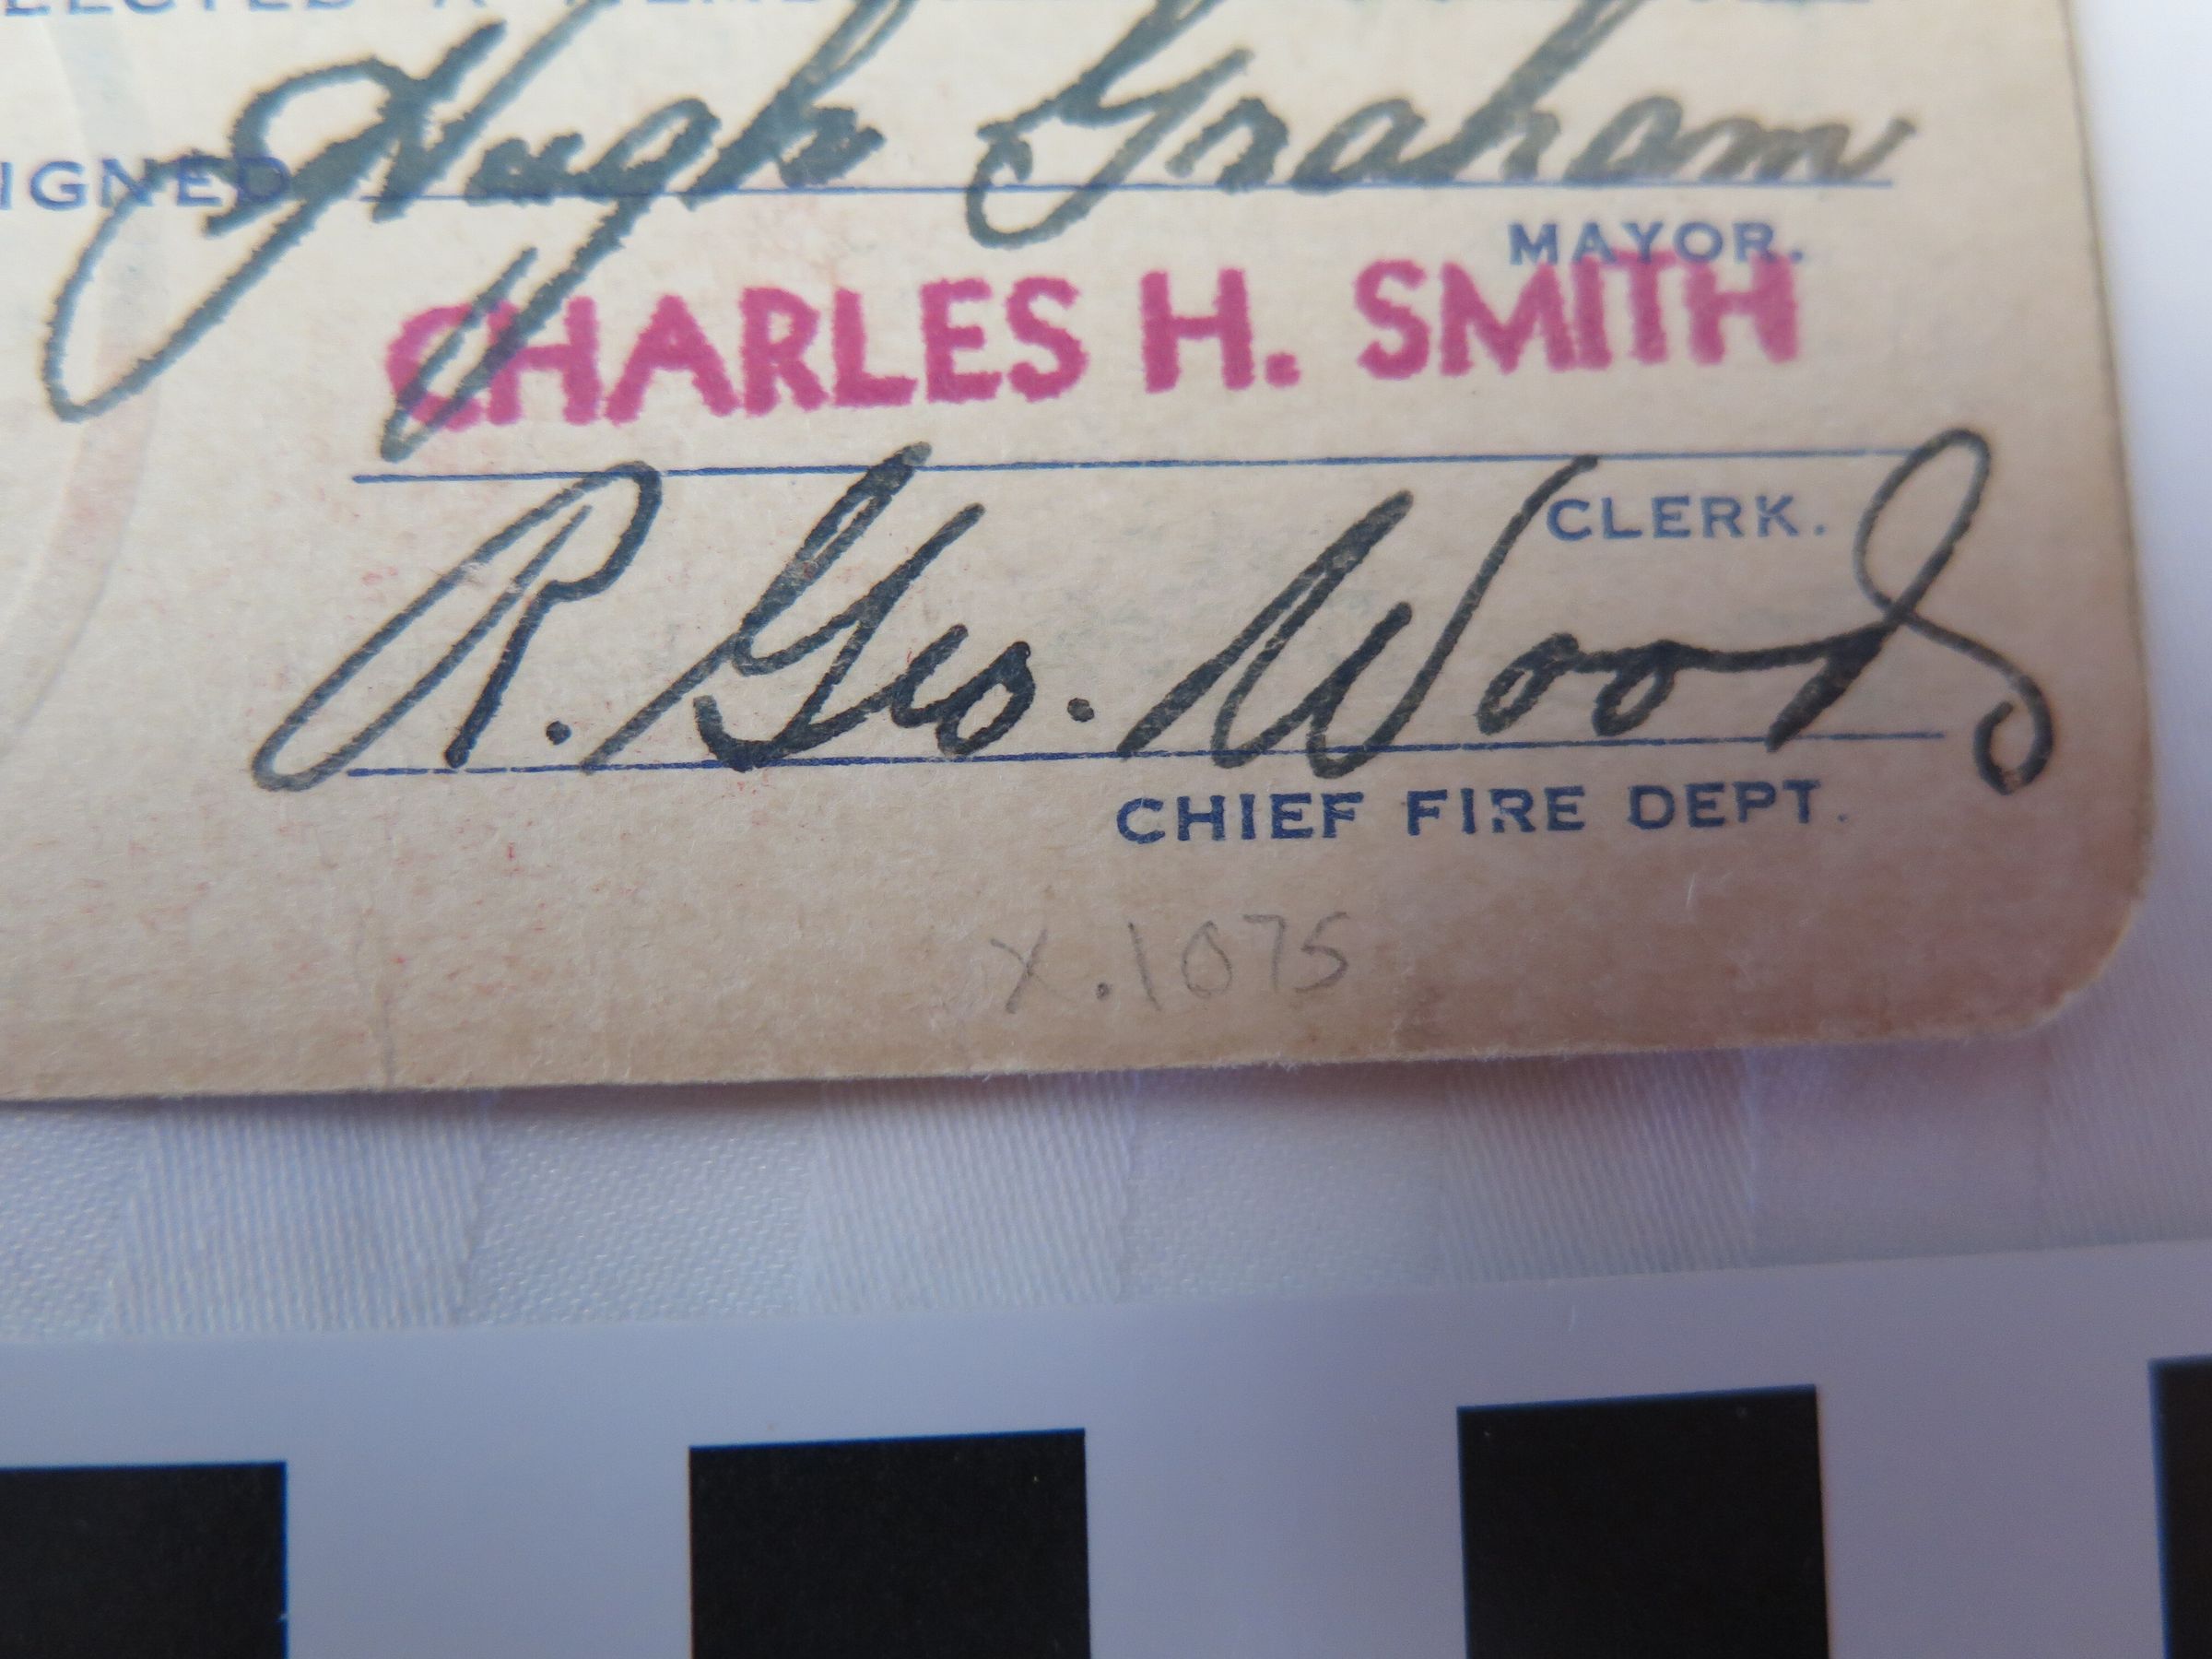 ELECTED A
SIGNED Hugh Graham
MAYOR.
CHARLES H. SMITH
CLERK.
R. Geo. Woods
CHIEF FIRE DEPT.
X.1075